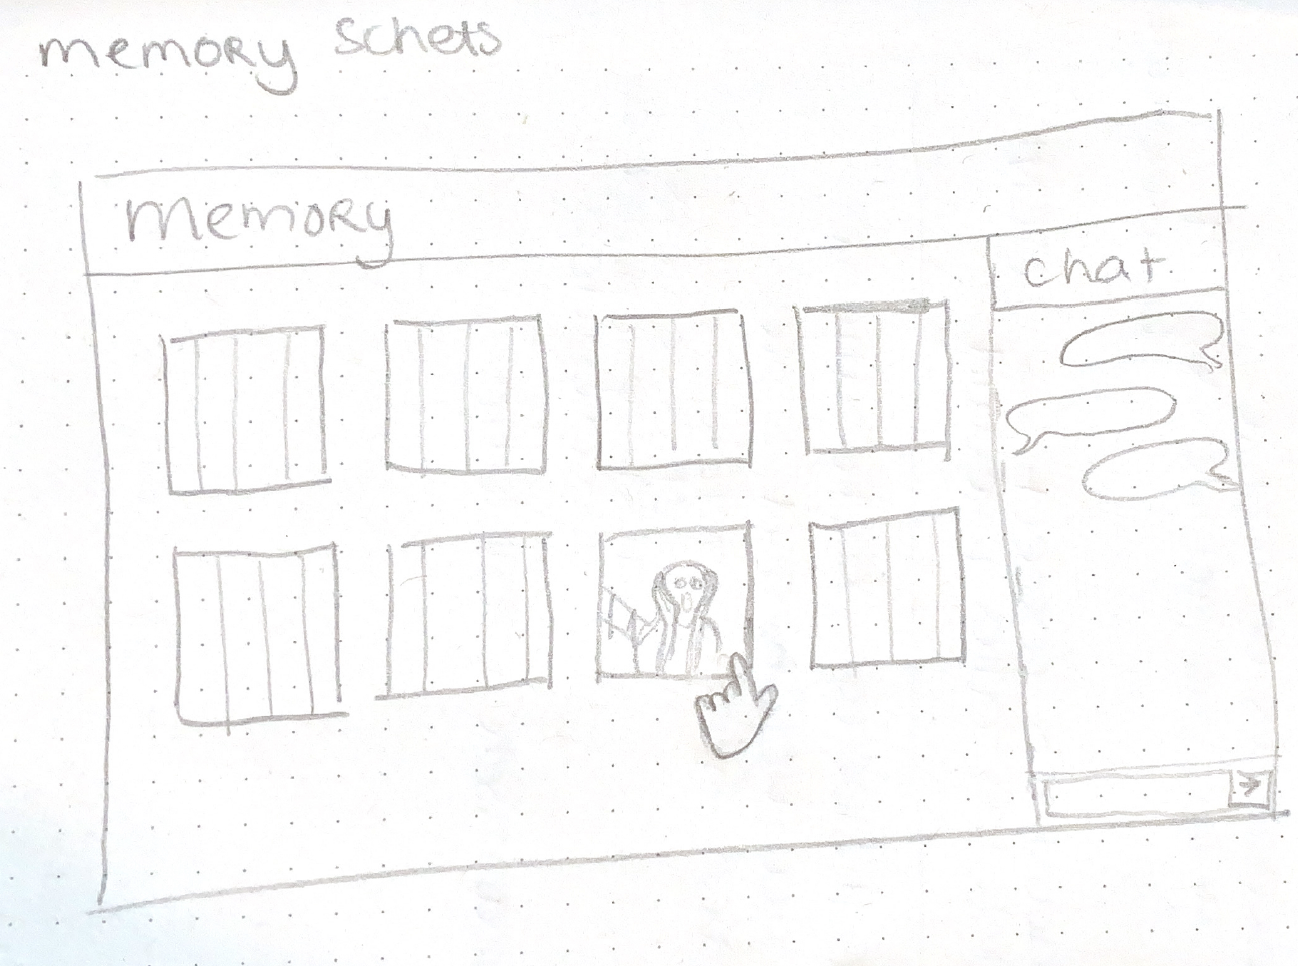 memory schets
memory
chat